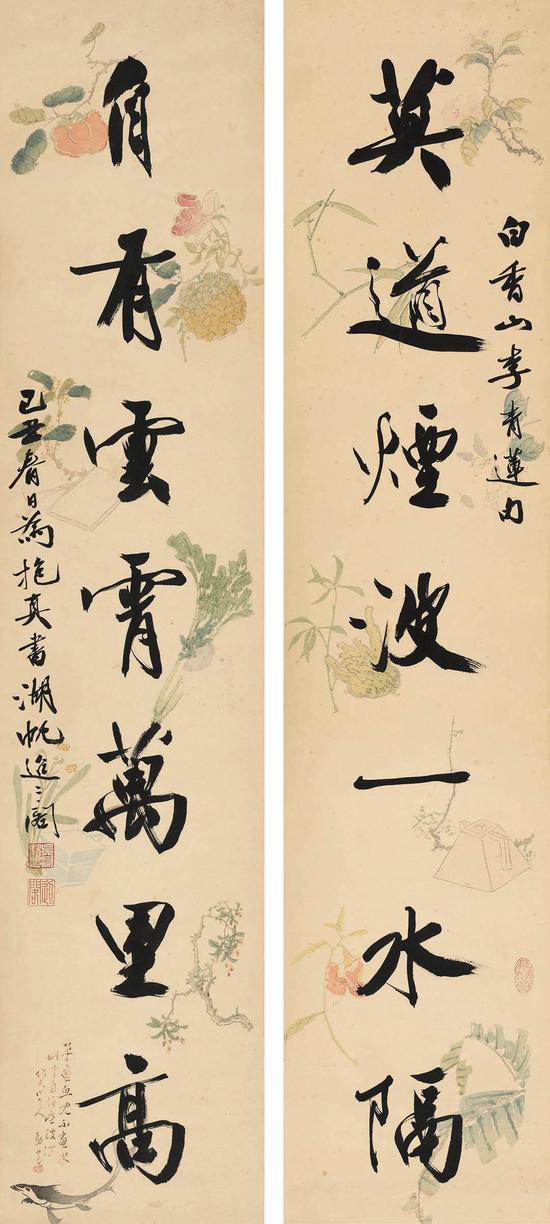 白香山李青蓮句
莫道煙波一水隔
自有雲霄萬里高
己丑春日為抱真書湖帆迢〻閣